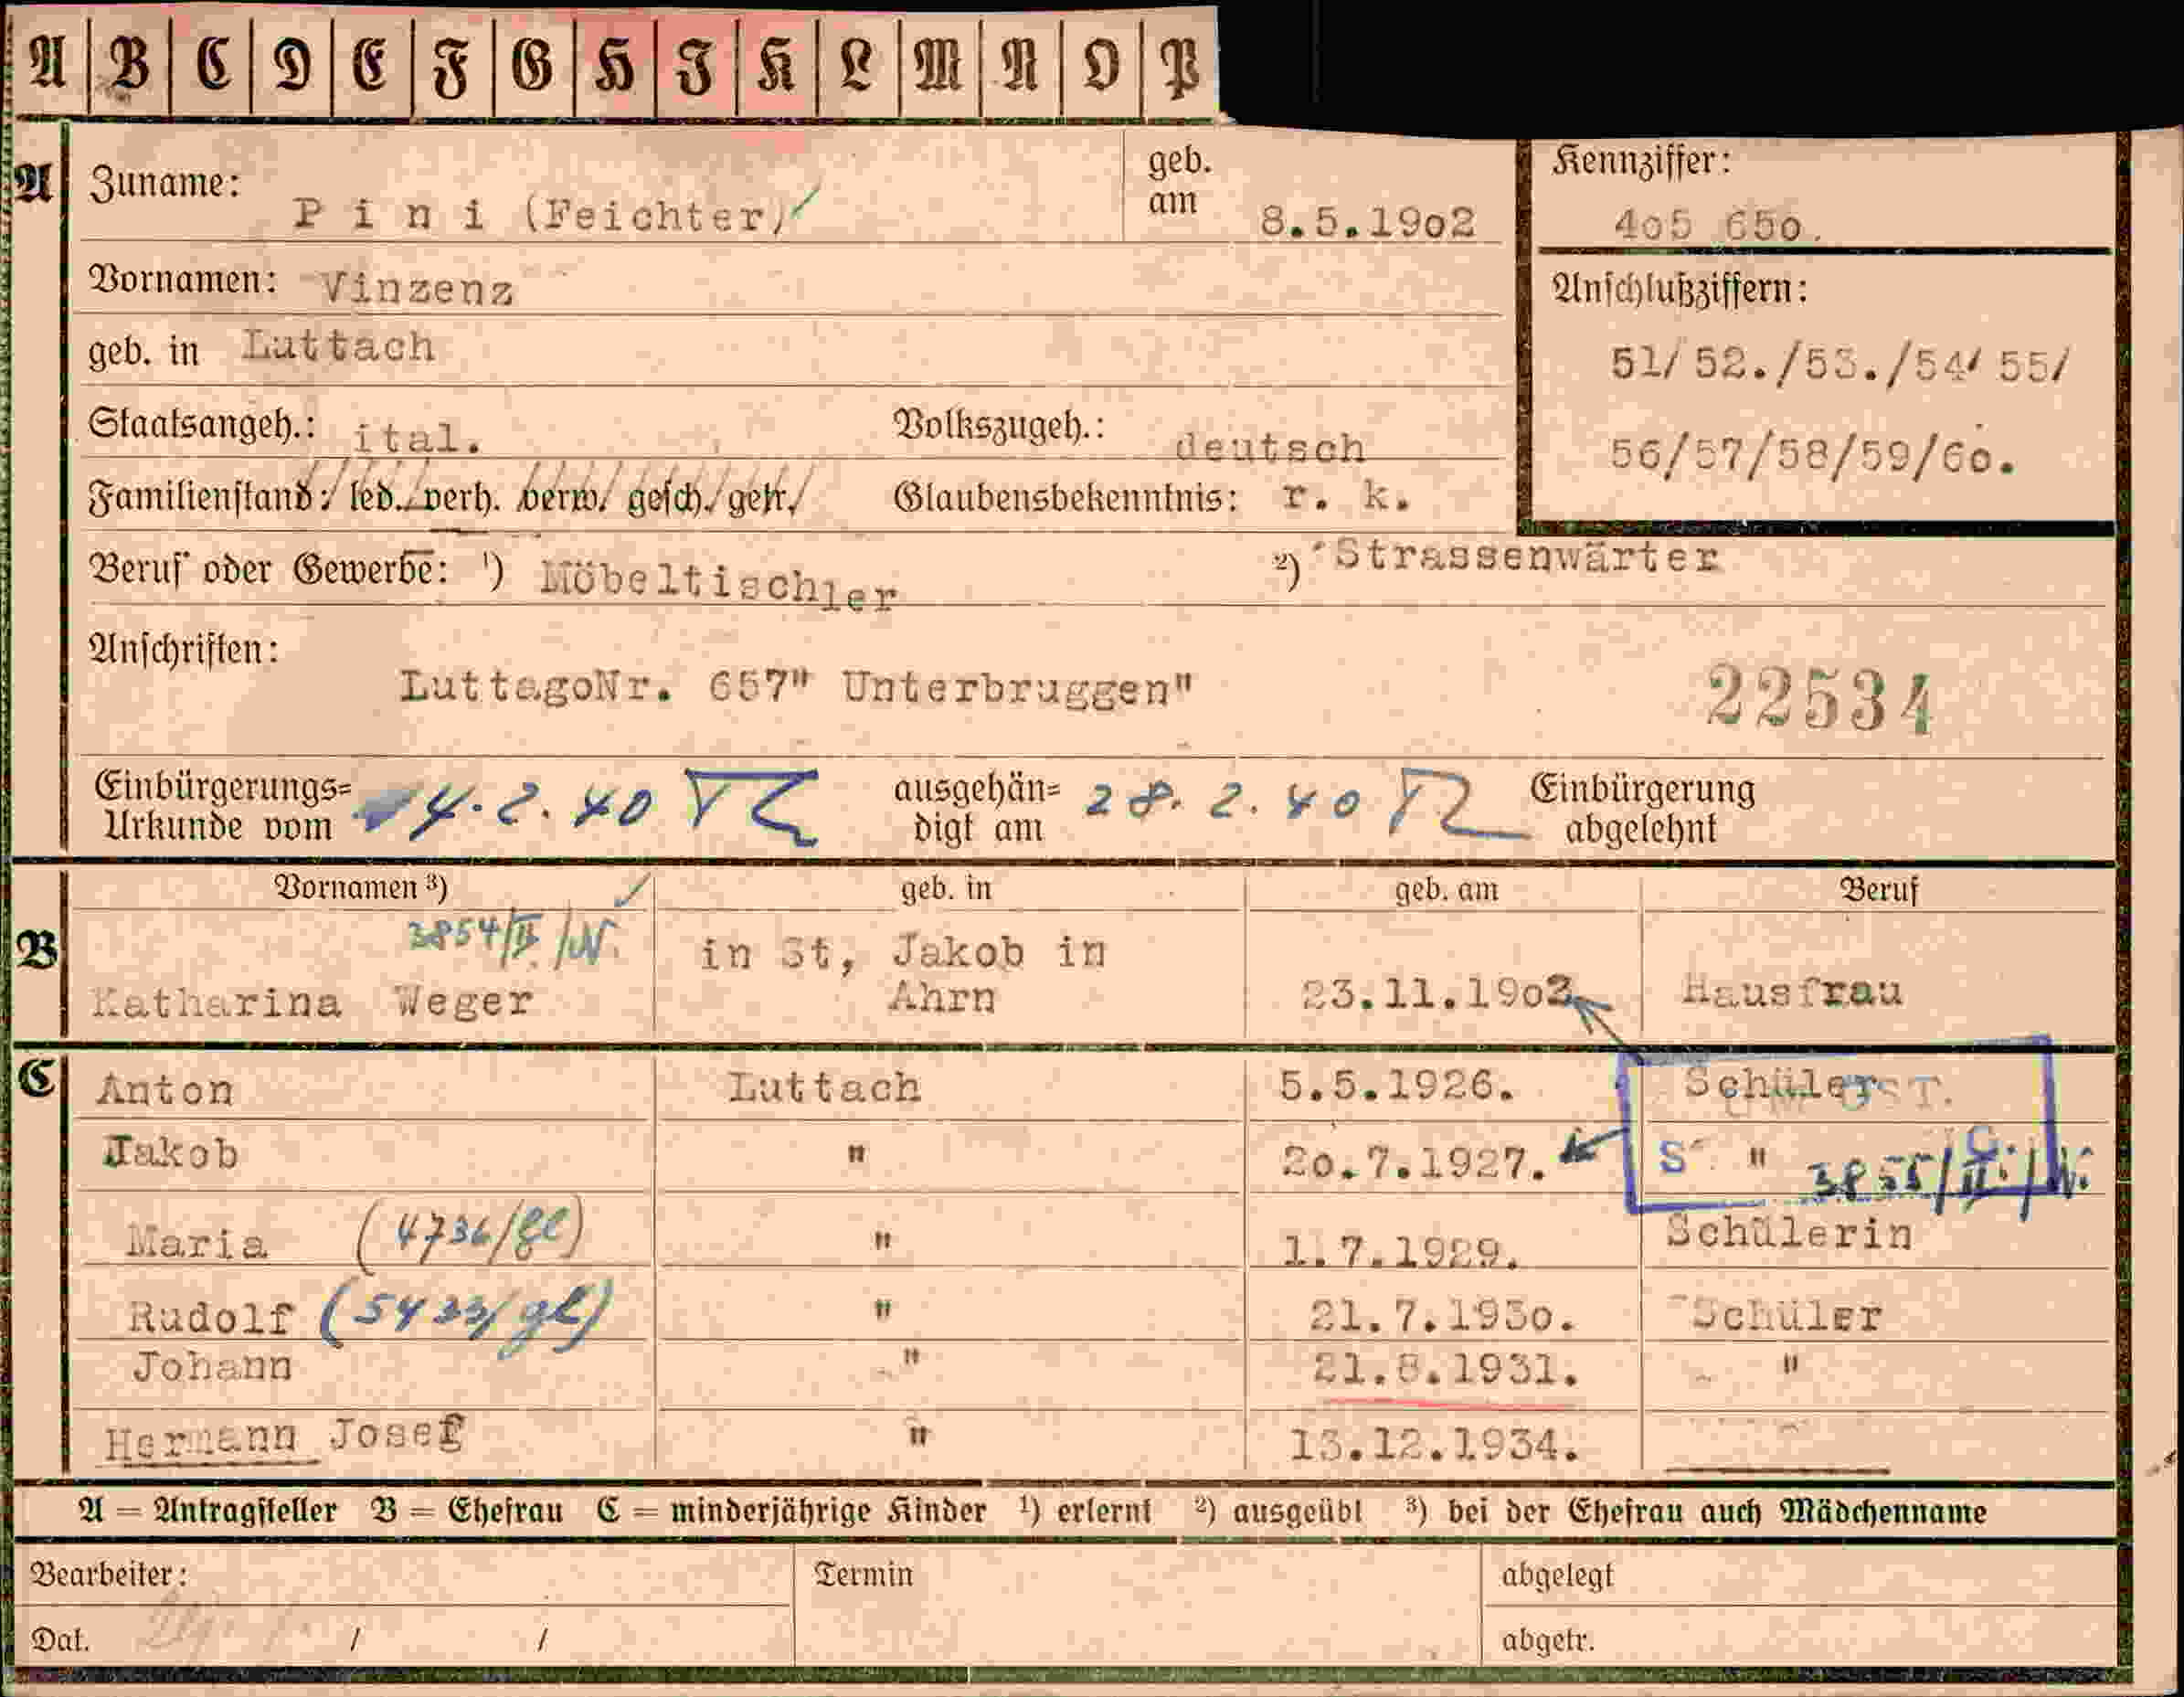 A B C D E F G H I K L M N O P
A Zuname: P i n i (Feichter) geb. am 8.5.19o2
Kennziffer: 4o5 65o.
Vornamen: Vinzenz
Anschlußziffern:
51/ 52./53./54/ 55/
56/57/58/59/6o.
geb. in Luttach
Staatsangeh.: ital. Volkszugeh.: deutsch
Familienstand: led. verh. verw. gesch. getr. Glaubensbekenntnis: r. k.
Beruf oder Gewerbe: ¹) Möbeltischler ²) Strassenwärter
Anschriften:
LuttagoNr. 657" Unterbruggen" 22534
Einbürgerungs= Urkunde vom 14.2.40 ausgehän= digt am 28.2.40 Einbürgerung abgelehnt
Vornamen ³) geb. in geb. am Beruf
3854/II/W.
B Katharina Weger in St, Jakob in Ahrn 23.11.19o2 Hausfrau
C Anton Luttach 5.5.1926. Schüler
Jakob " 2o.7.1927. " 3855/II./W.
Maria (4736/gl) " 1.7.1929. Schülerin
Rudolf (5433/gl) " 21.7.193o. Schüler
Johann " 21.8.1931. "
Hermann Josef " 13.12.1934.
A = Antragsteller B = Ehefrau C = minderjährige Kinder ¹) erlernt ²) ausgeübt ³) bei der Ehefrau auch Mädchenname
Bearbeiter: Termin abgelegt
Dat. / / abgetr.